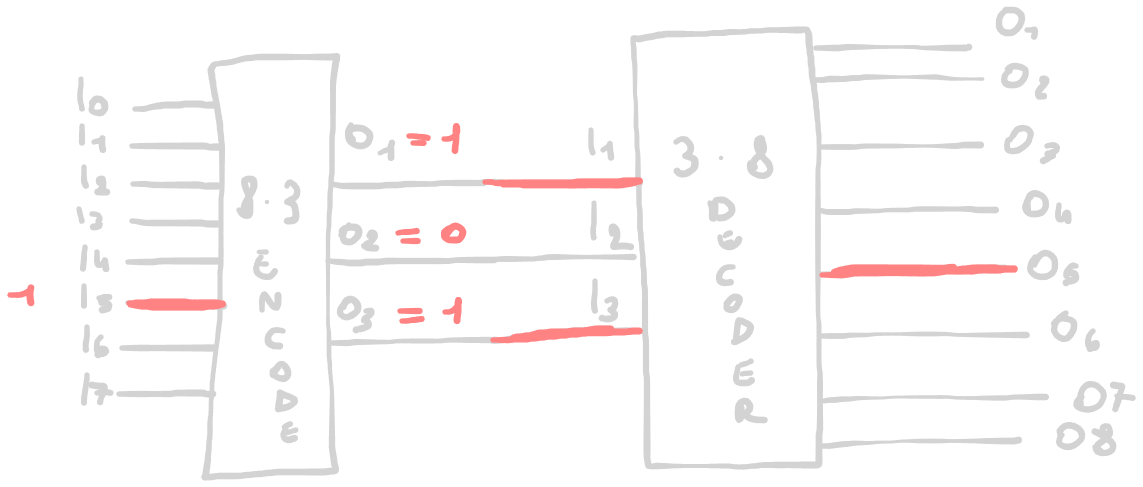 I0
I1
I2
I3
I4
1 I5
I6
I7
8.3
ENCODE
O1 = 1
O2 = 0
O3 = 1
I1
I2
I3
3.8
DECODER
O1
O2
O3
O4
O5
O6
O7
O8